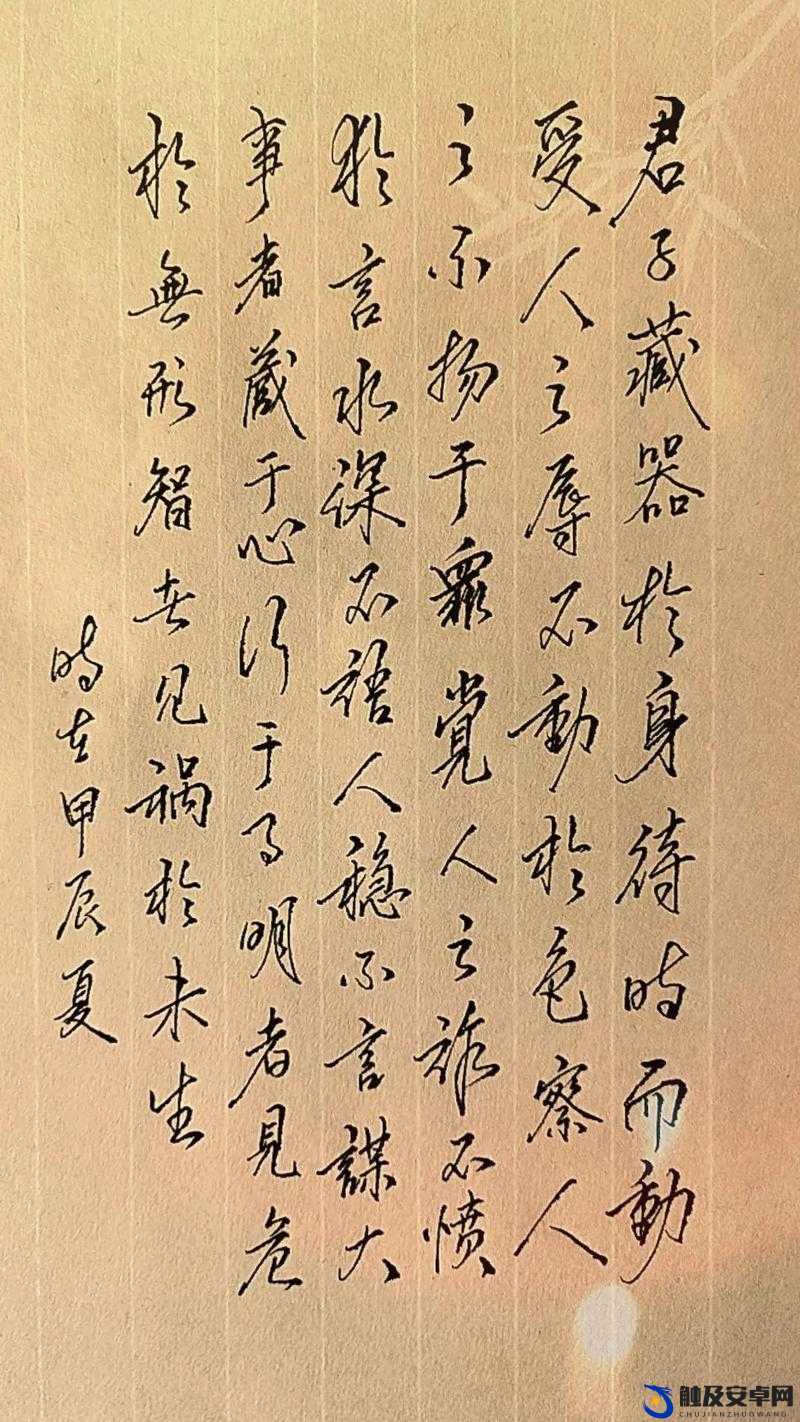 君子藏器於身待時而動
受人之辱不動於色察人
之不扬于眾覚人之诈不愤
於言水深不語人稳不言謀大
事者藏于心行于事明者見危
於無形智者见祸於未生
時在甲辰夏
触及安卓网
CHUJIANZHUOWANG